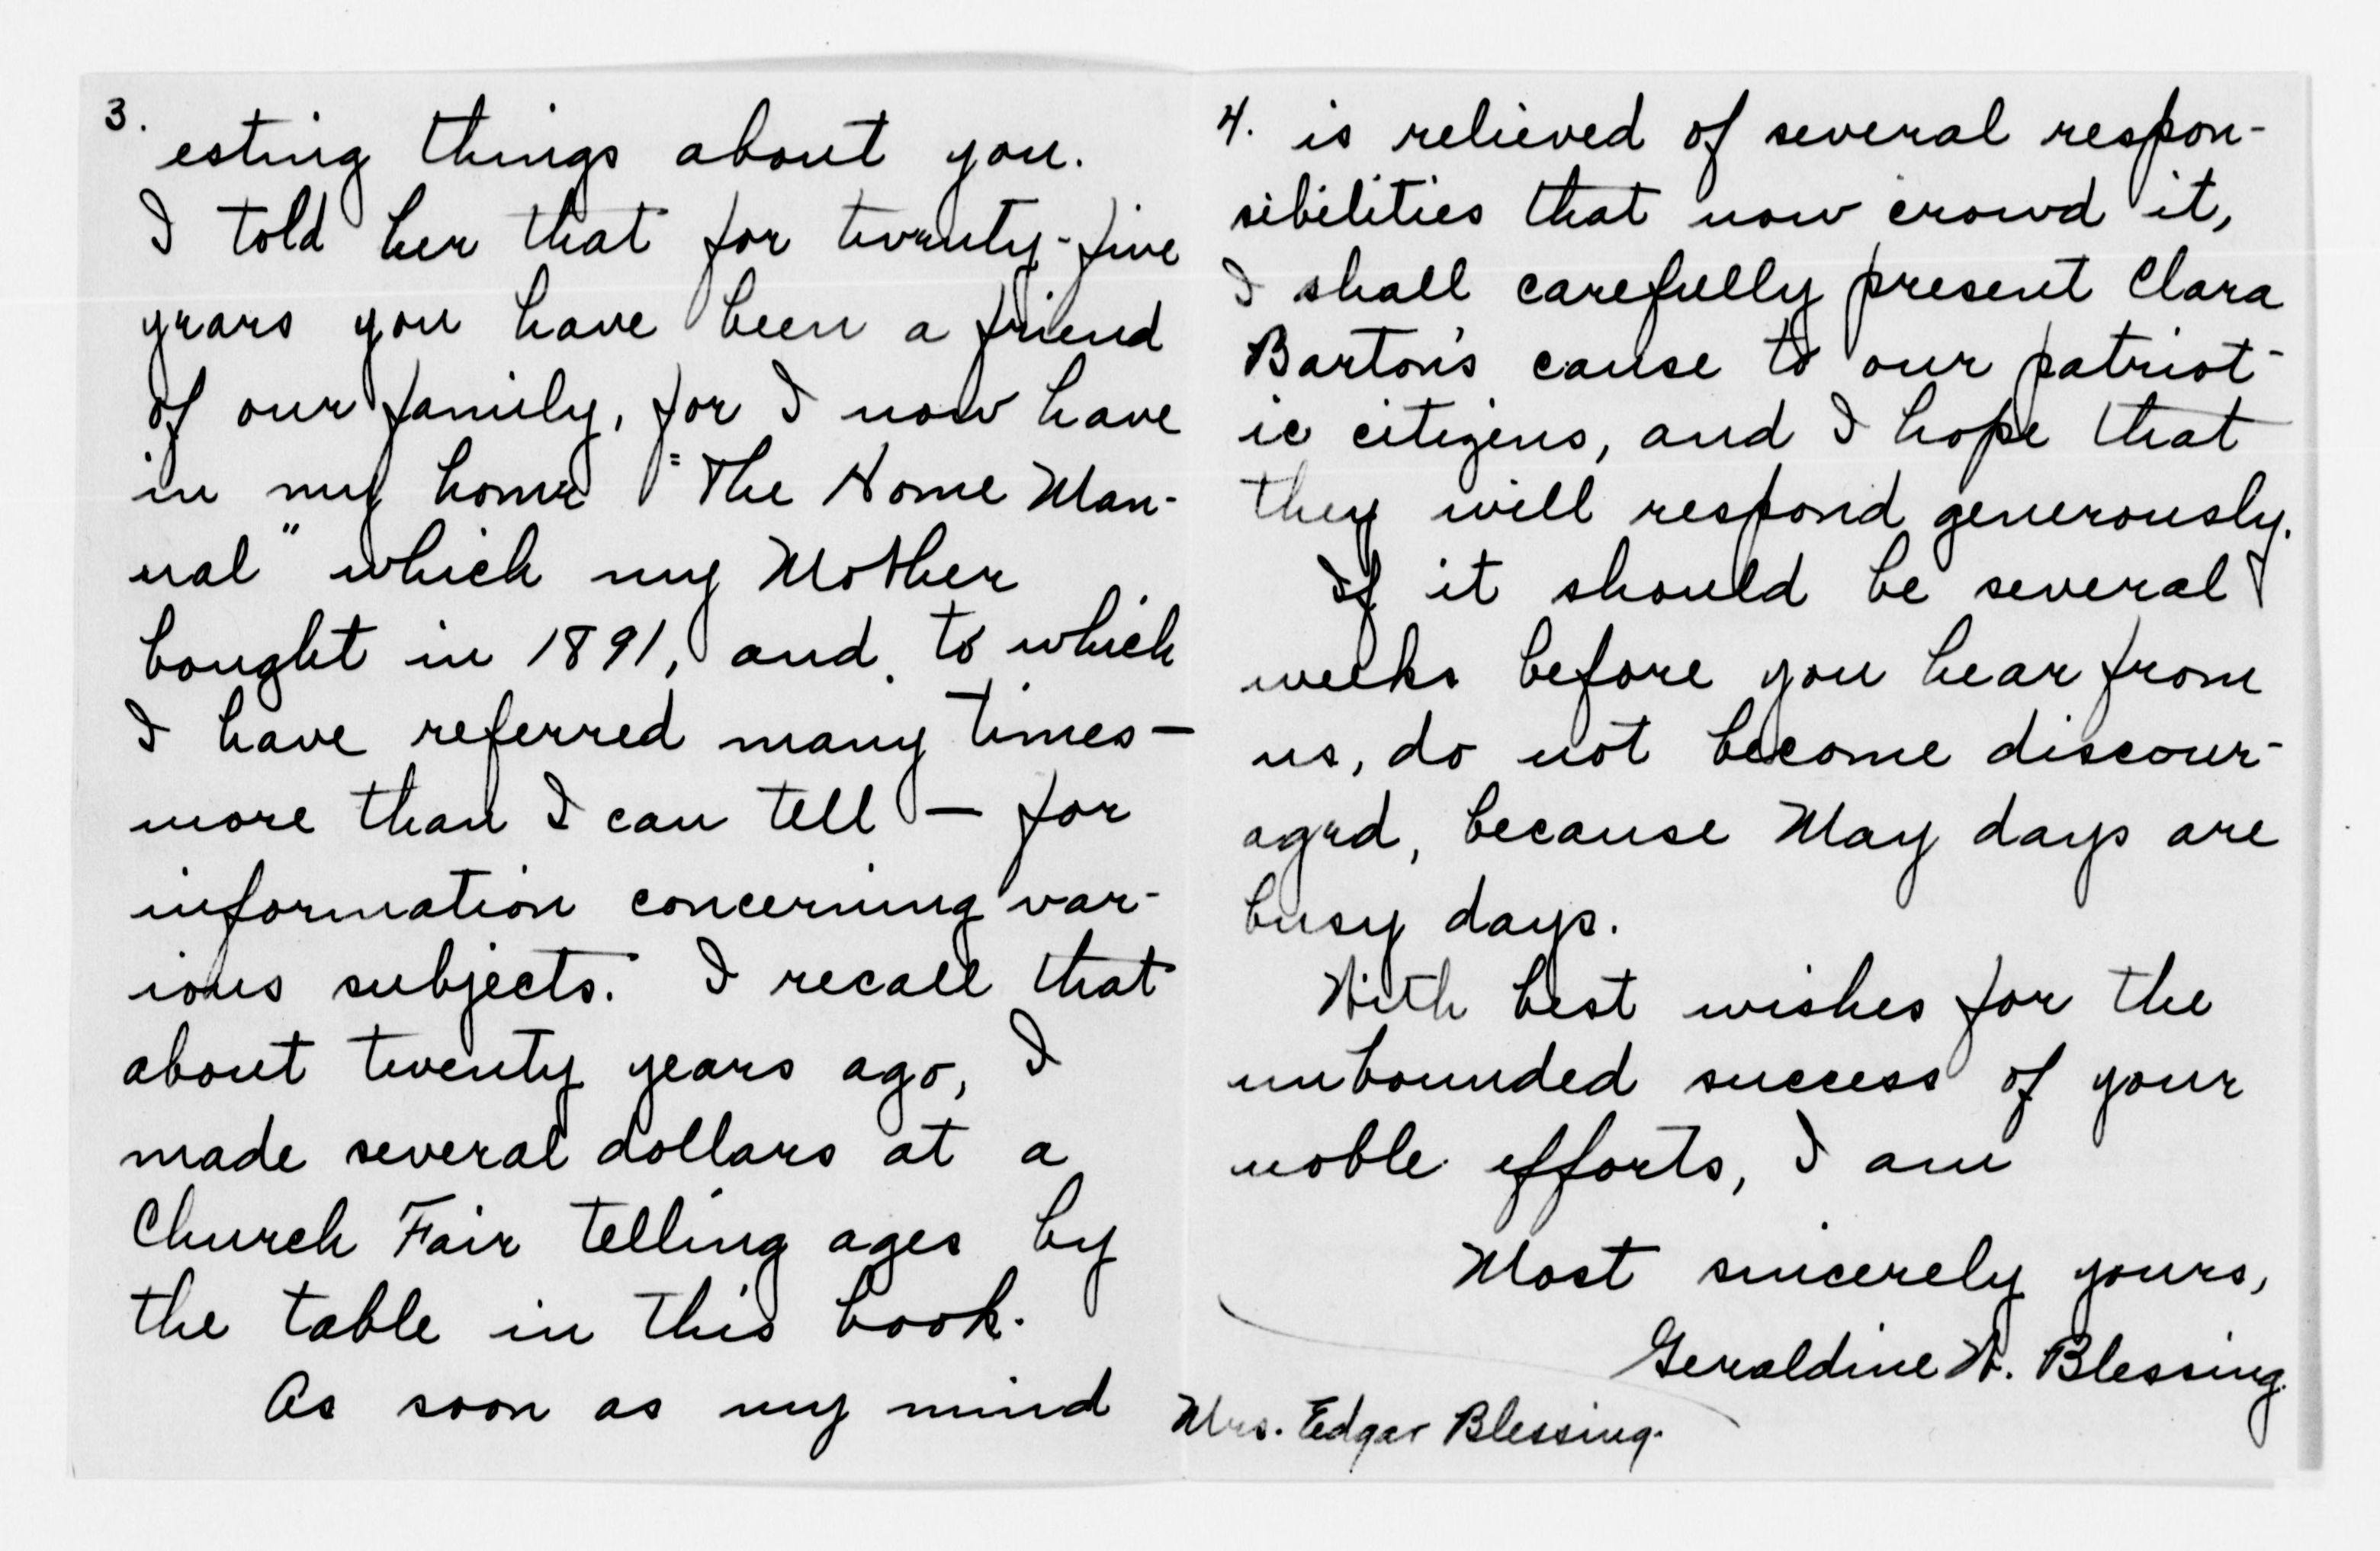 3.
esting things about you.
I told her that for twenty-five
years you have been a friend
of our family, for I now have
in my home "The Home Man-
ual" which my Mother
bought in 1891, and to which
I have referred many times—
more than I can tell — for
information concerning var-
ious subjects. I recall that
about twenty years ago, I
made several dollars at a
Church Fair telling ages by
the table in this book.
As soon as my mind
4. is relieved of several respon-
sibilities that now crowd it,
I shall carefully present Clara
Barton's cause to our patriot-
ic citizens, and I hope that
they will respond generously.
If it should be several
weeks before you hear from
us, do not become discour-
aged, because May days are
busy days.
With best wishes for the
unbounded success of your
noble efforts, I am
Most sincerely yours,
Geraldine W. Blessing.
Mrs. Edgar Blessing.